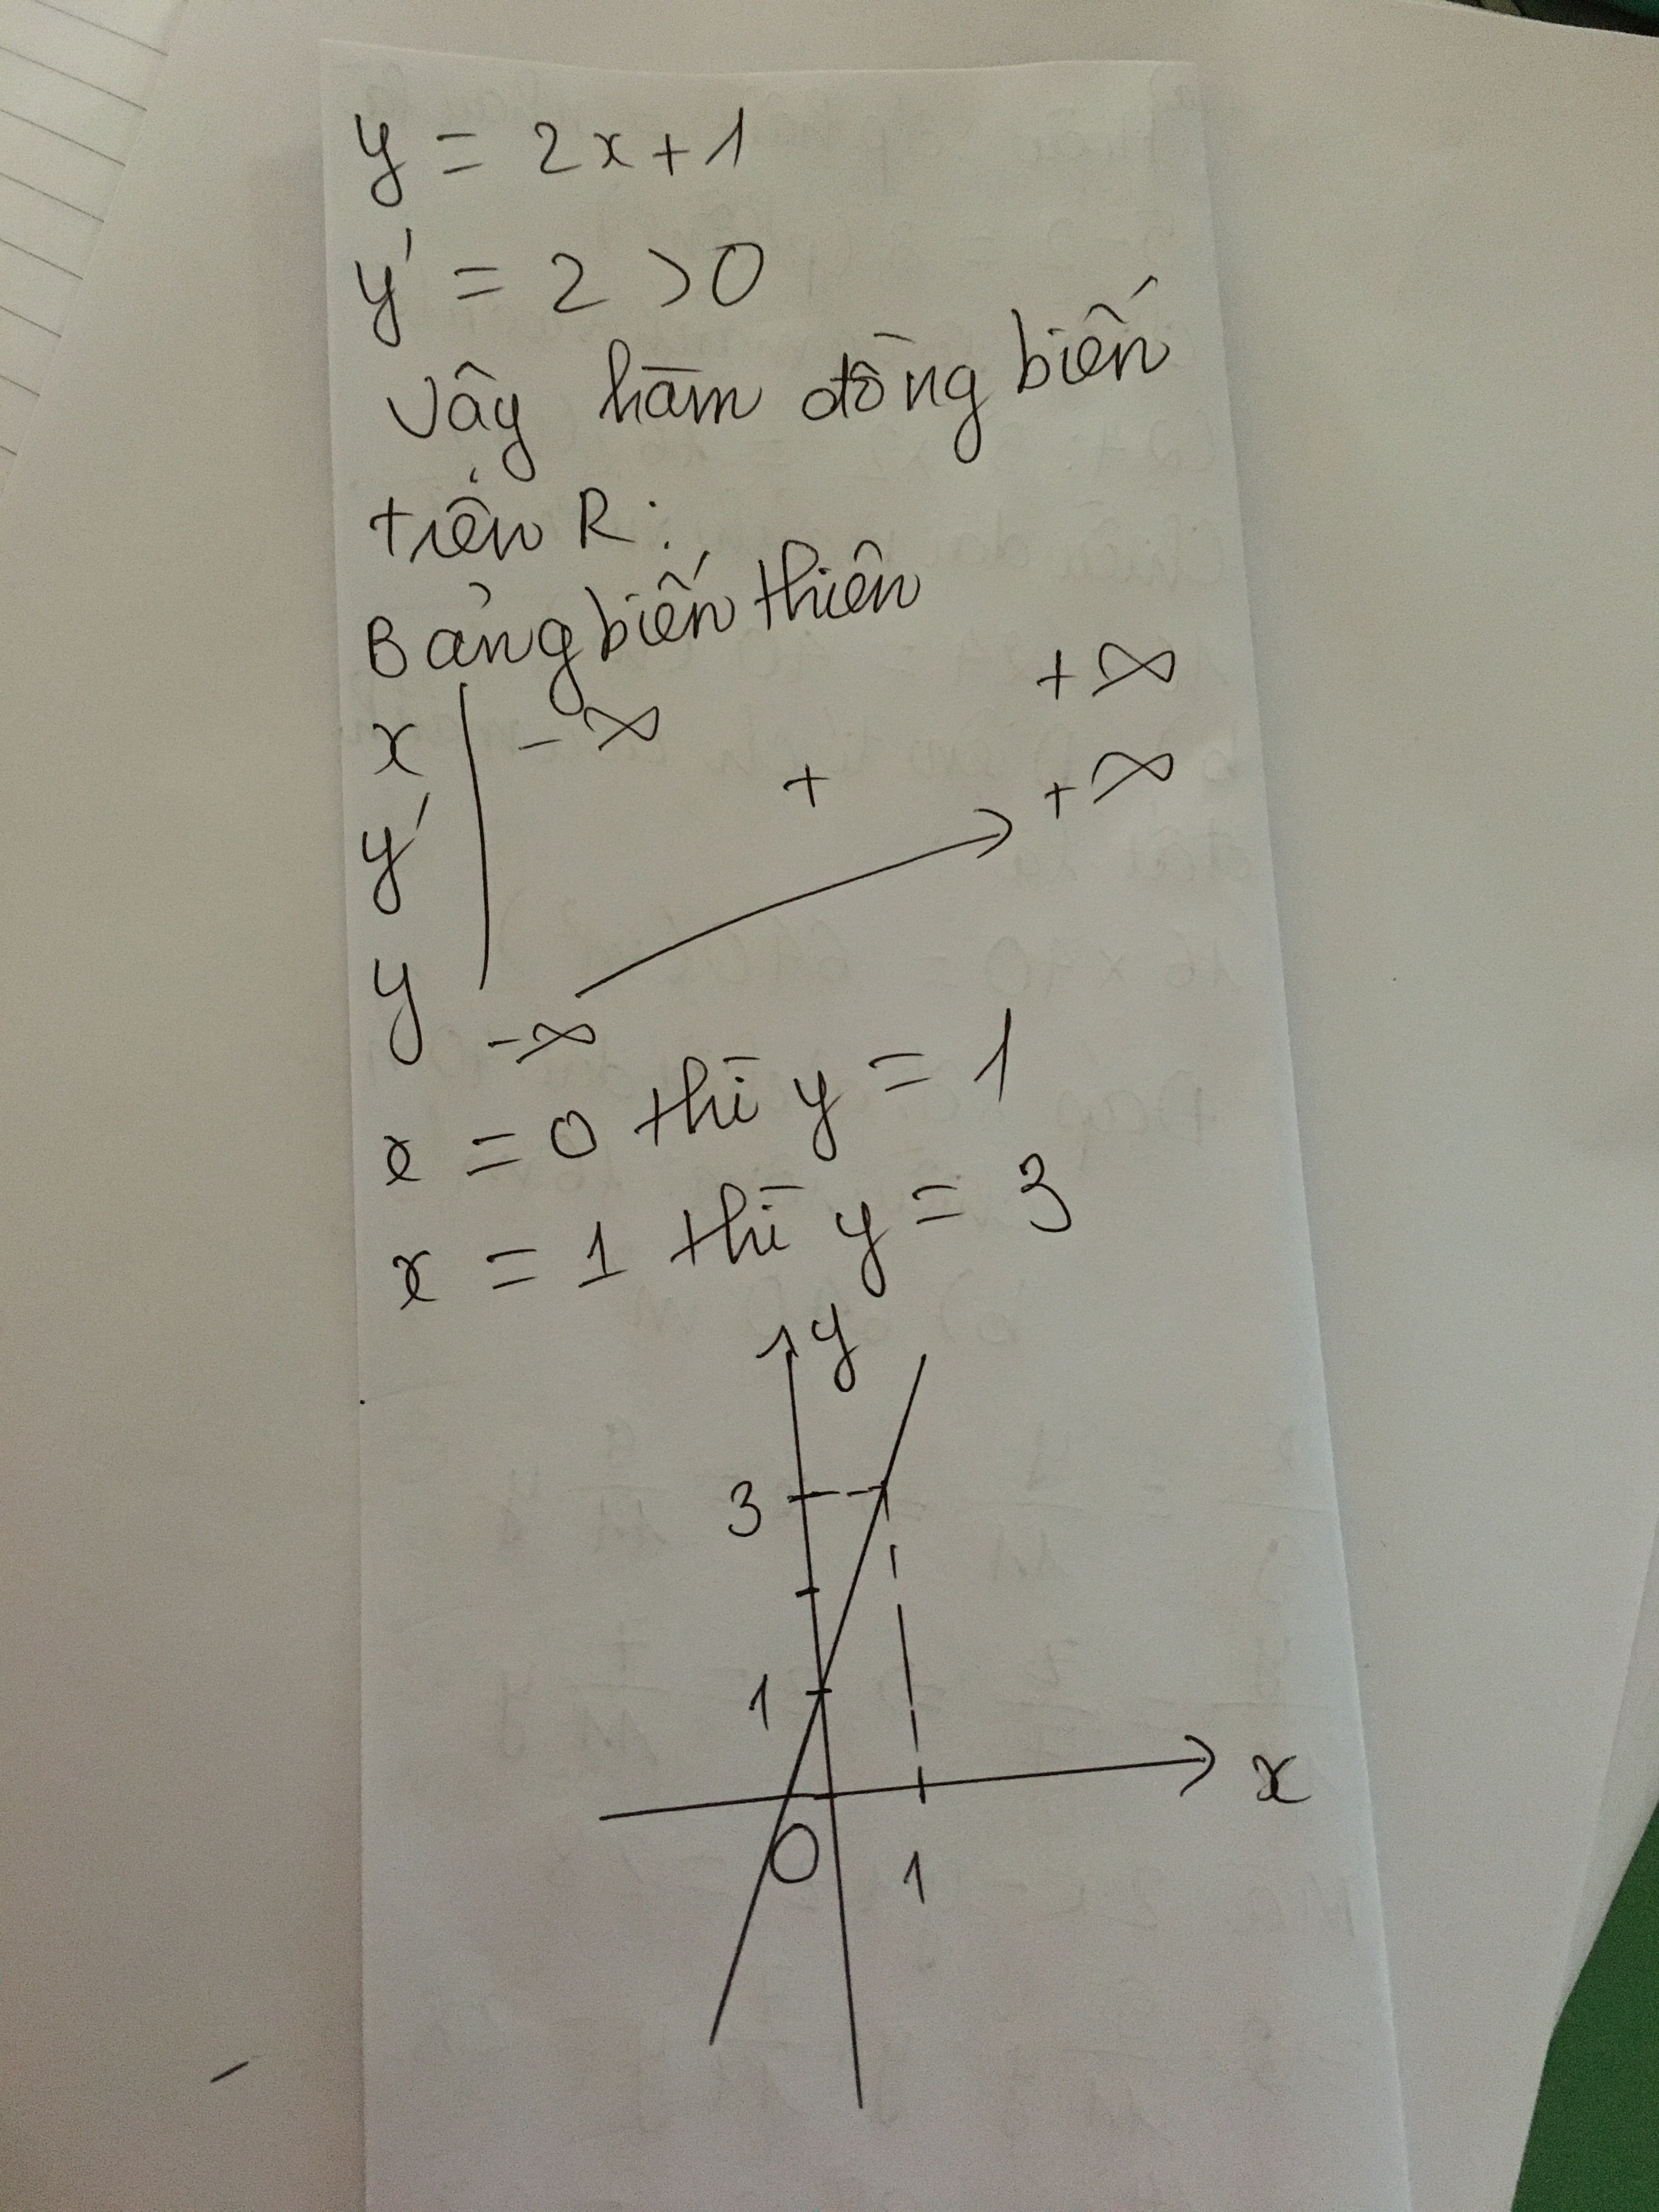 y = 2x + 1
y' = 2 > 0
Vậy hàm đồng biến
trên R.
Bảng biến thiên
x -∞ +∞
y' +
y -∞ +∞
x = 0 thì y = 1
x = 1 thì y = 3
y
3
1
x
O 1